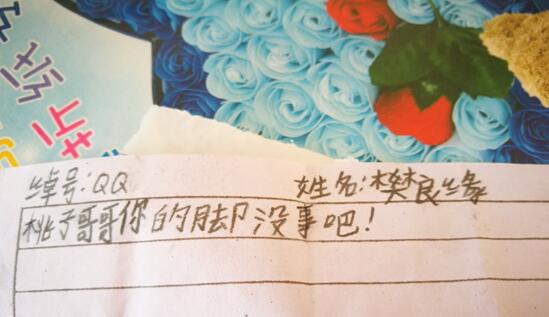 绰号:QQ 姓名:樊良缘
桃子哥哥你的脚没事吧!